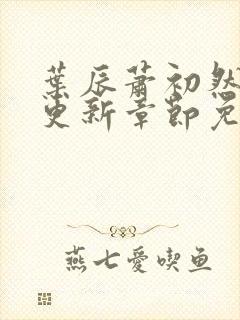 葉辰蕭初然
更新章節免
燕七愛喫魚